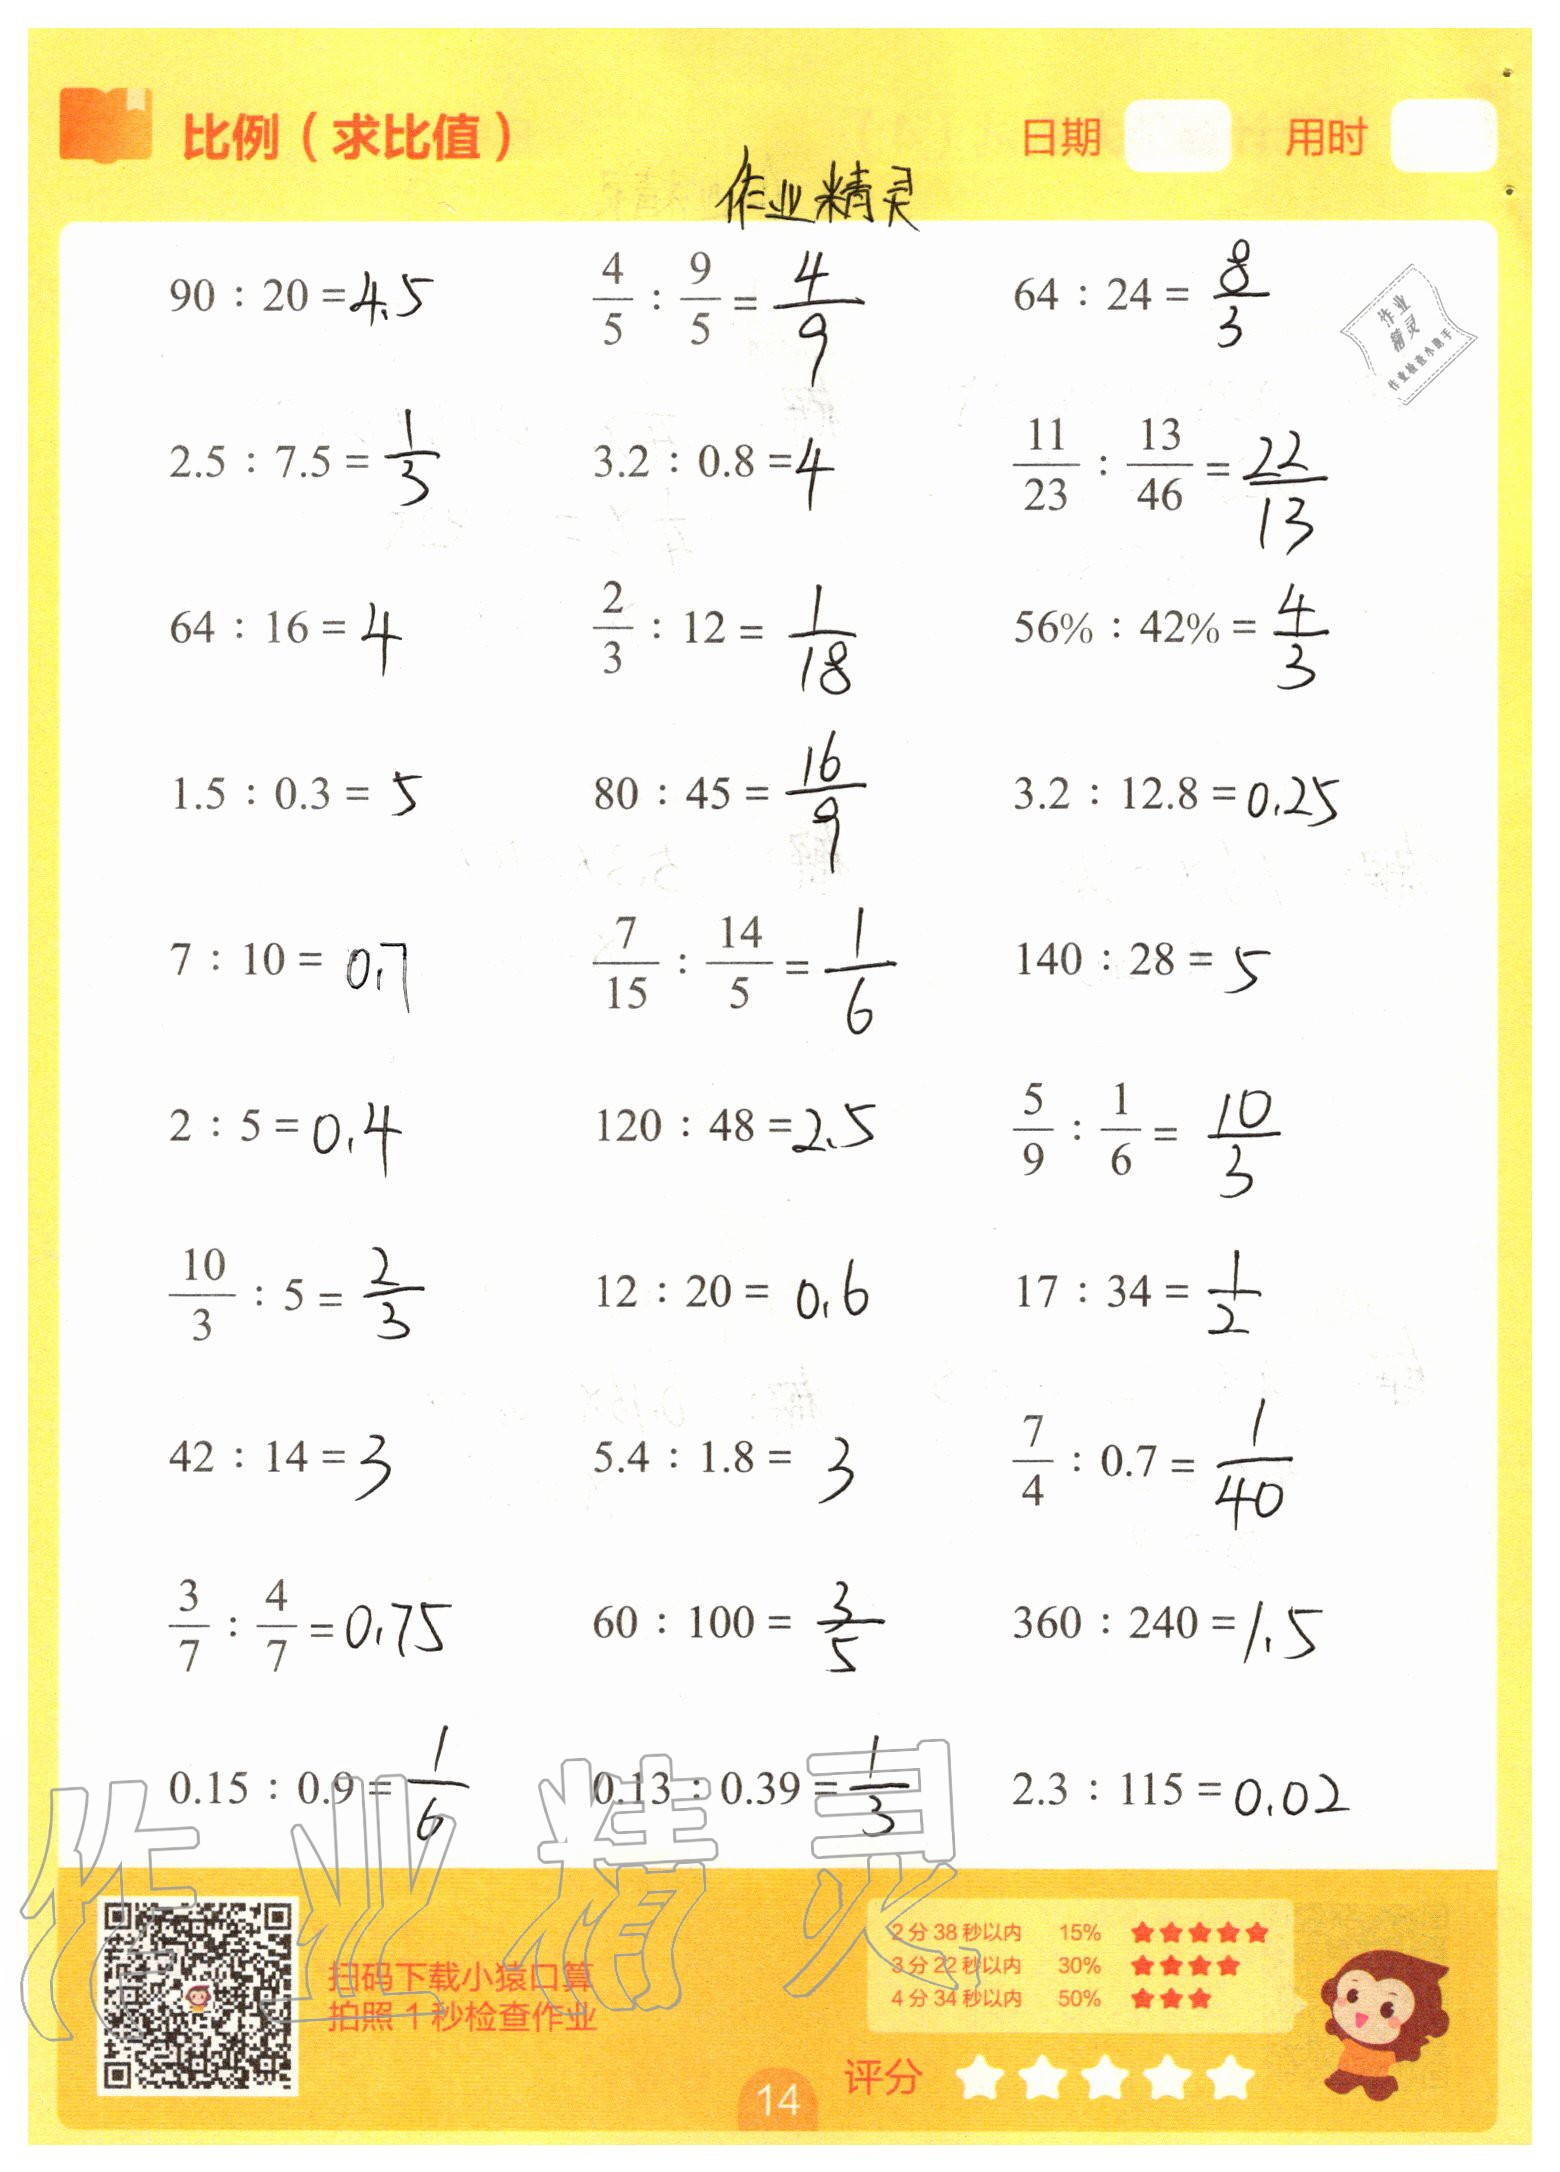 比例（求比值） 日期 用时
作业精灵
90 : 20 = 4.5 4/5 : 9/5 = 4/9 64 : 24 = 8/3
作业
精灵
作业检查小助手
2.5 : 7.5 = 1/3 3.2 : 0.8 = 4 11/23 : 13/46 = 22/13
64 : 16 = 4 2/3 : 12 = 1/18 56% : 42% = 4/3
1.5 : 0.3 = 5 80 : 45 = 16/9 3.2 : 12.8 = 0.25
7 : 10 = 0.7 7/15 : 14/5 = 1/6 140 : 28 = 5
2 : 5 = 0.4 120 : 48 = 2.5 5/9 : 1/6 = 10/3
10/3 : 5 = 2/3 12 : 20 = 0.6 17 : 34 = 1/2
42 : 14 = 3 5.4 : 1.8 = 3 7/4 : 0.7 = 1/40
3/7 : 4/7 = 0.75 60 : 100 = 3/5 360 : 240 = 1.5
0.15 : 0.9 = 1/6 0.13 : 0.39 = 1/3 2.3 : 115 = 0.02
作业精灵
扫码下载小猿口算
拍照 1 秒检查作业
2 分 38 秒以内 15% ★★★★★
3 分 22 秒以内 30% ★★★★
4 分 34 秒以内 50% ★★★
评分
14